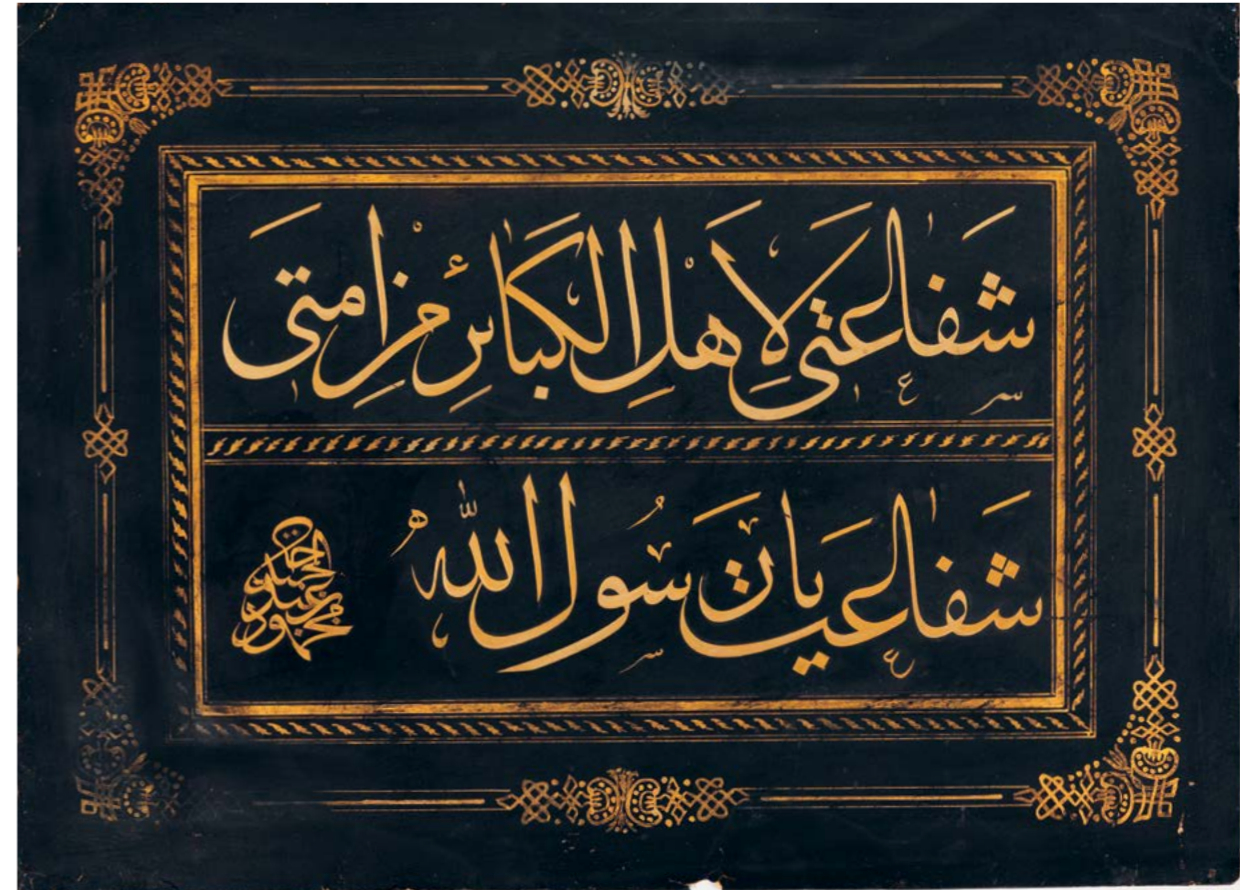 شَفَاعَتى لِاَهلِ الكَبَائرِ مِن امتى
شَفَاعت يَا رَسُول الله
محمود بن عبد الحميد خان